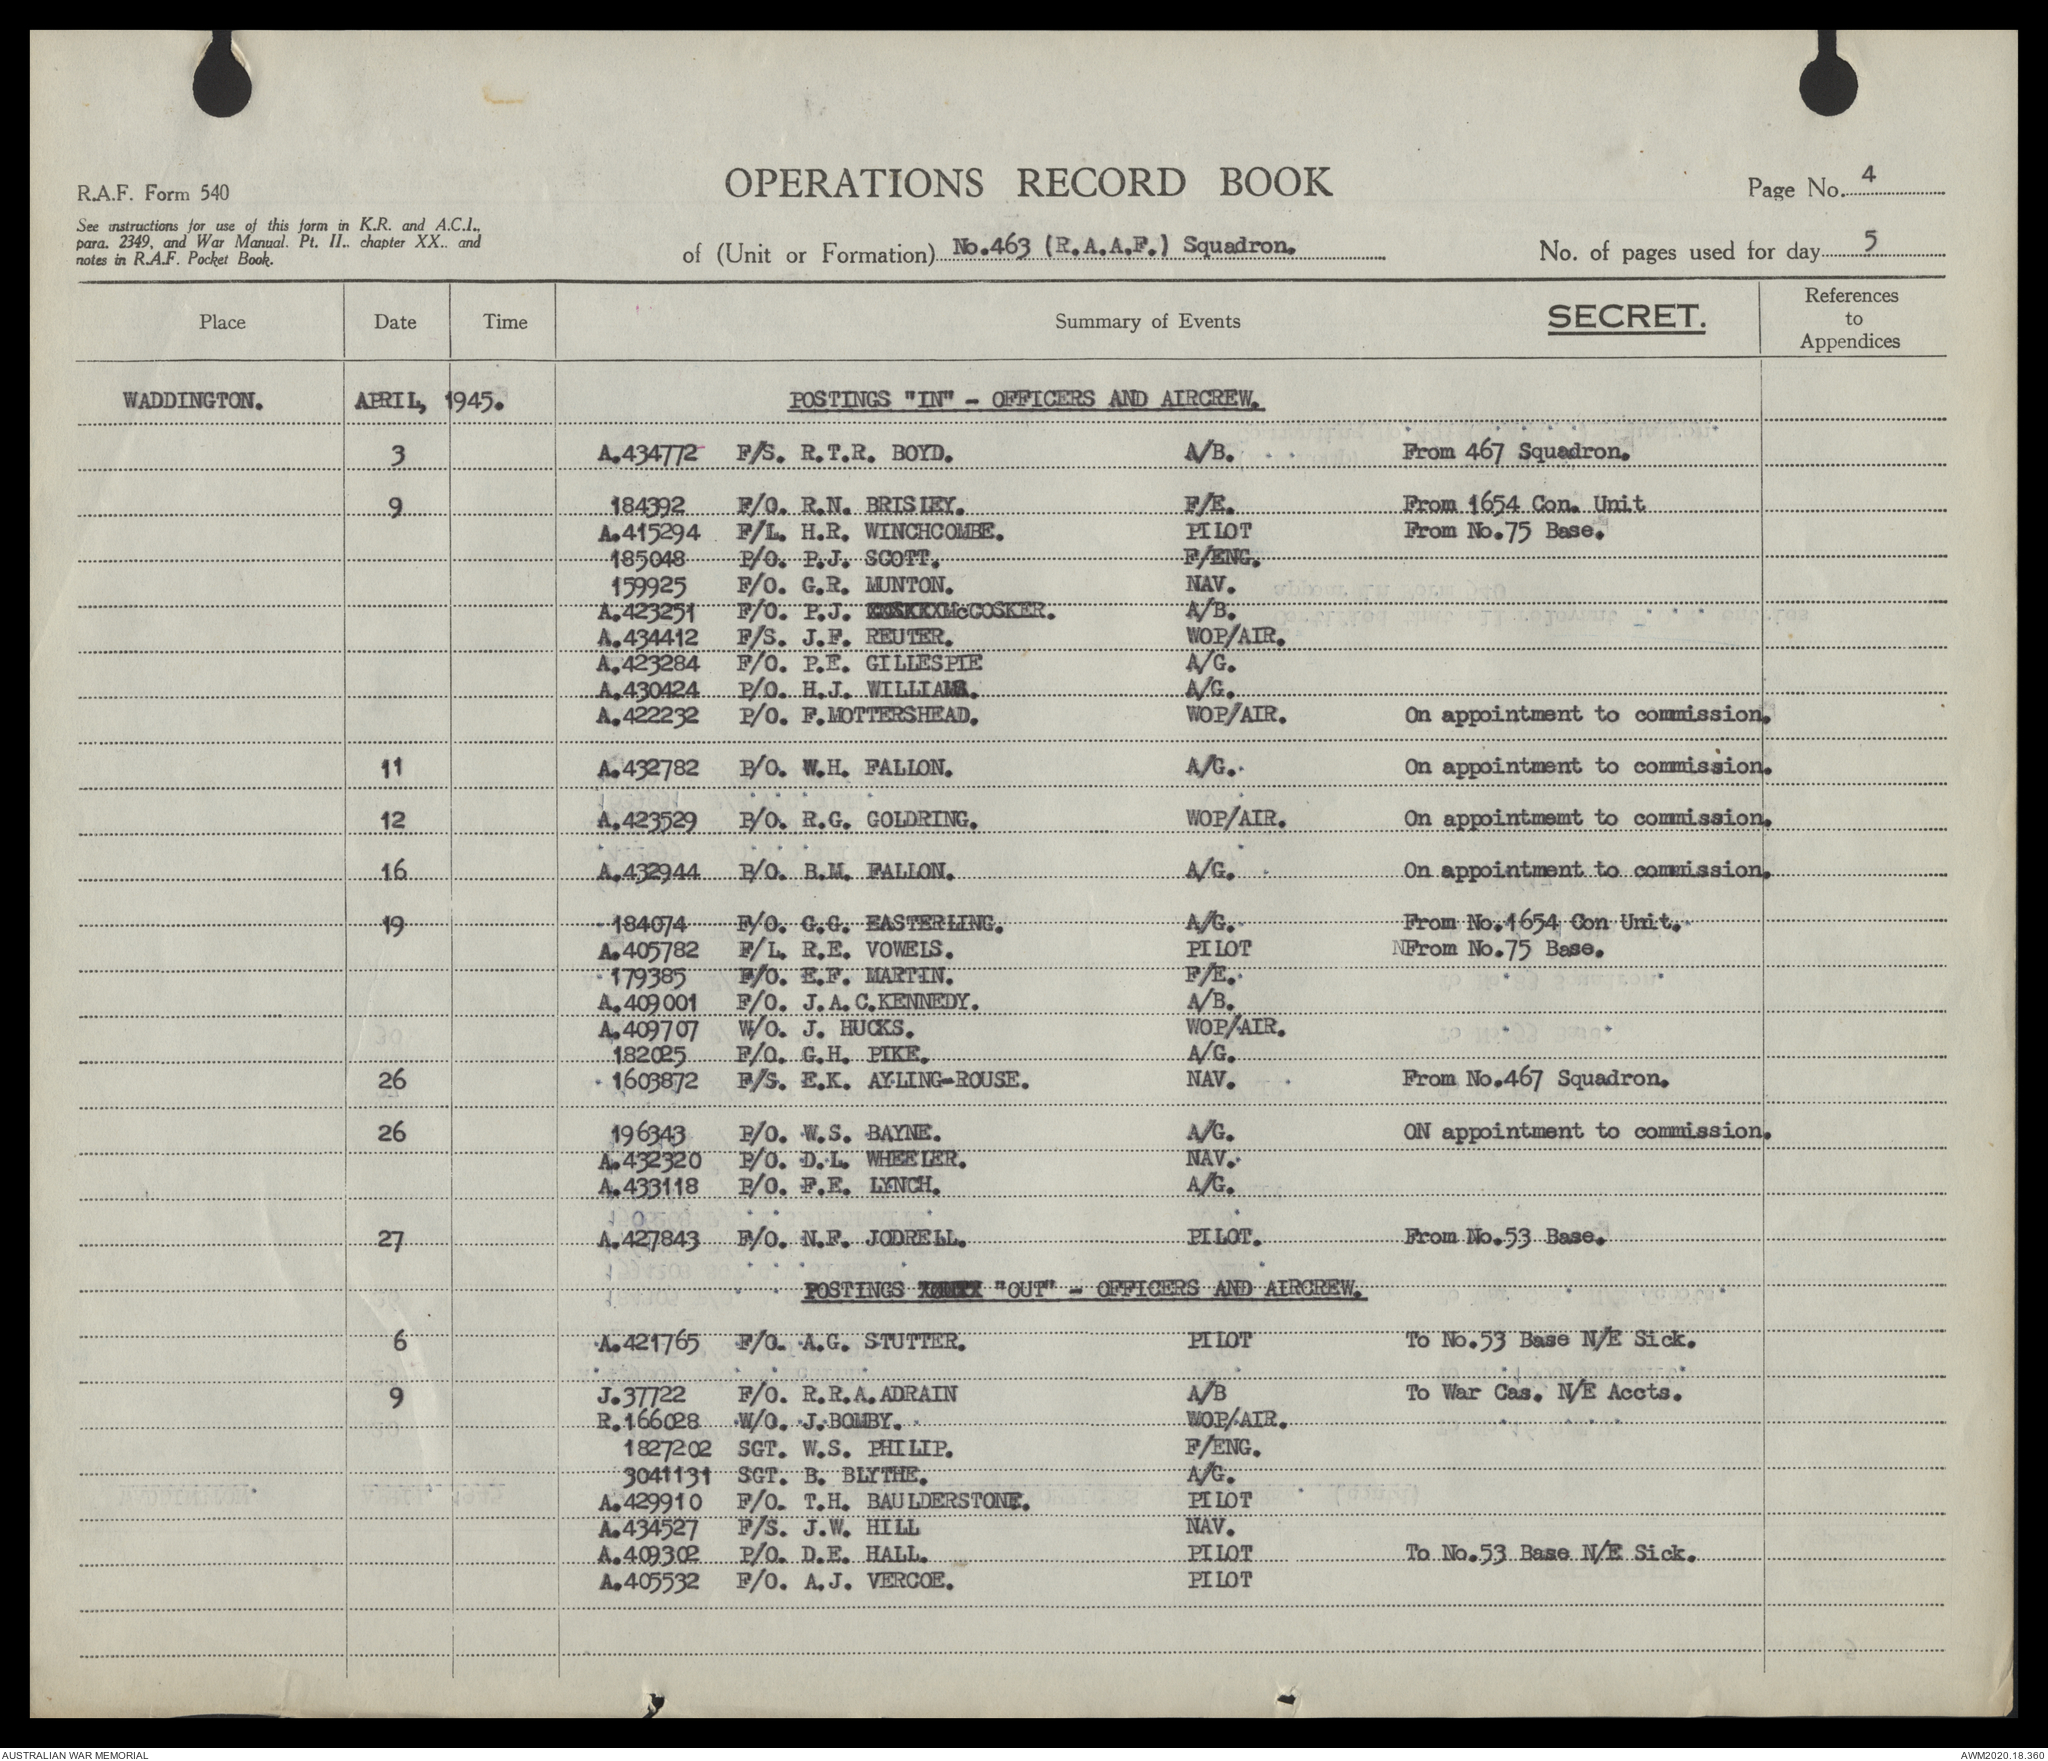 OPERATIONS RECORD BOOK
R.A.F. Form 540
Page No. 4
See instructions for use of this form in K.R. and A.C.I.,
para. 2349, and War Manual. Pt. II., chapter XX., and
notes in R.A.F. Pocket Book.
of (Unit or Formation) No.463 (R.A.A.F.) Squadron.
No. of pages used for day 5
Place Date Time Summary of Events SECRET. References to Appendices
WADDINGTON. APRIL, 1945. POSTINGS "IN" - OFFICERS AND AIRCREW.
3 A.434772 F/S. R.T.R. BOYD. A/B. From 467 Squadron.
9 184392 F/O. R.N. BRISLEY. F/E. From 1654 Con. Unit
A.415294 F/L. H.R. WINCHCOMBE. PILOT From No.75 Base.
185048 P/O. P.J. SCOTT. F/ENG.
159925 F/O. G.R. MUNTON. NAV.
A.423251 F/O. P.J. McCOSKER. A/B.
A.434412 F/S. J.F. REUTER. WOP/AIR.
A.423284 F/O. P.E. GILLESPIE A/G.
A.430424 P/O. H.J. WILLIAMS. A/G.
A.422232 P/O. F.MOTTERSHEAD. WOP/AIR. On appointment to commission.
11 A.432782 P/O. W.H. FALLON. A/G. On appointment to commission.
12 A.423529 P/O. R.G. GOLDRING. WOP/AIR. On appointmemt to commission.
16 A.432944 P/O. B.M. FALLON. A/G. On appointment to commission.
19 184074 F/O. G.G. EASTERLING. A/G. From No.1654 Con Unit.
A.405782 F/L. R.E. VOWELS. PILOT NFrom No.75 Base.
179385 F/O. E.F. MARTIN. F/E.
A.409001 F/O. J.A.C.KENNEDY. A/B.
A.409707 W/O. J. HUCKS. WOP/AIR.
182025 F/O. G.H. PIKE. A/G.
26 1603872 F/S. E.K. AYLING-ROUSE. NAV. From No.467 Squadron.
26 196343 P/O. W.S. BAYNE. A/G. ON appointment to commission.
A.432320 P/O. D.L. WHEELER. NAV.
A.433118 P/O. F.E. LYNCH. A/G.
27 A.427843 F/O. N.F. JODRELL. PILOT. From No.53 Base.
POSTINGS "OUT" - OFFICERS AND AIRCREW.
6 A.421765 F/O. A.G. STUTTER. PILOT To No.53 Base N/E Sick.
9 J.37722 F/O. R.R.A.ADRAIN A/B To War Cas. N/E Accts.
R.166028 W/O. J.BOMBY. WOP/AIR.
1827202 SGT. W.S. PHILIP. F/ENG.
3041131 SGT. B. BLYTHE. A/G.
A.429910 F/O. T.H. BAULDERSTONE. PILOT
A.434527 F/S. J.W. HILL NAV.
A.409302 P/O. D.E. HALL. PILOT To No.53 Base N/E Sick.
A.405532 F/O. A.J. VERCOE. PILOT
AUSTRALIAN WAR MEMORIAL
AWM2020.18.360